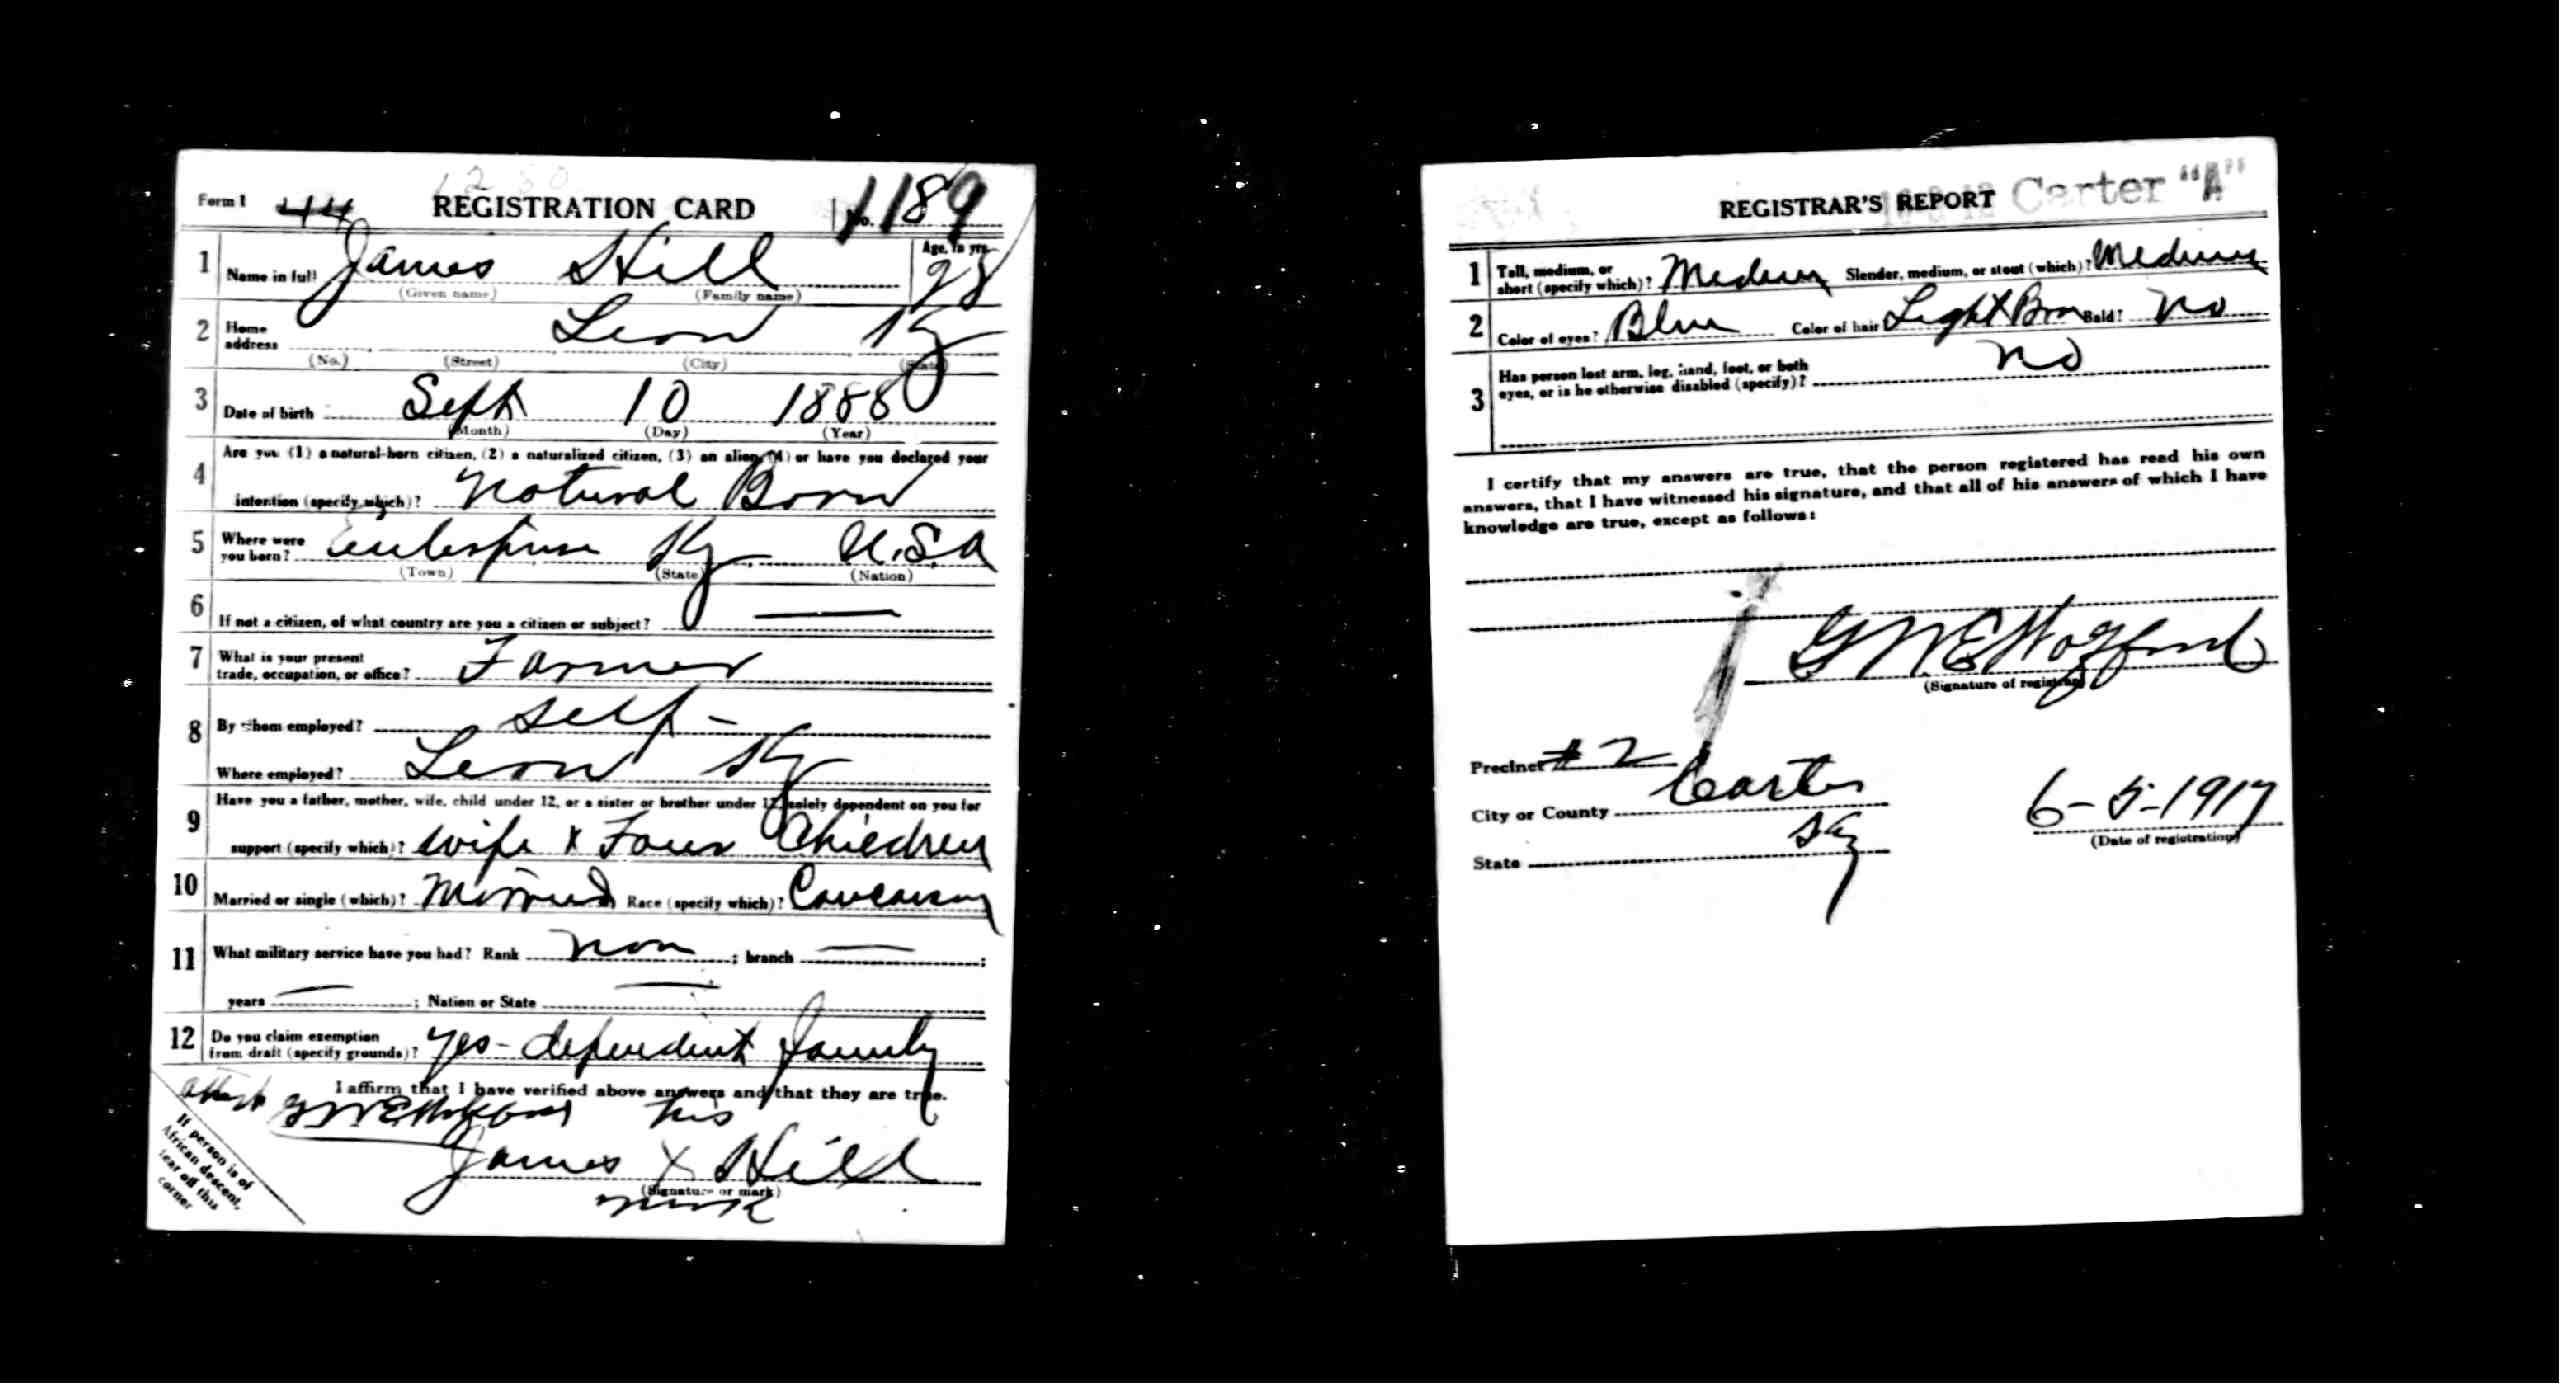 Form 1 44 REGISTRATION CARD No. 1189
1 Name in full James Hill Age, in yrs. 28
(Given name) (Family name)
2 Home address Leon Ky
(No.) (Street) (City) (State)
3 Date of birth Sept 10 1888
(Month) (Day) (Year)
4 Are you (1) a natural-born citizen, (2) a naturalized citizen, (3) an alien, (4) or have you declared your
intention (specify which)? Natural Born
5 Where were you born? Enterprise Ky U.S.A
(Town) (State) (Nation)
6 If not a citizen, of what country are you a citizen or subject? —
7 What is your present trade, occupation, or office? Farmer
8 By whom employed? self -
Where employed? Leon Ky
9 Have you a father, mother, wife, child under 12, or a sister or brother under 12, solely dependent on you for
support (specify which)? wife & Four Children
10 Married or single (which)? Married Race (specify which)? Caucasian
11 What military service have you had? Rank non ; branch — ;
years — ; Nation or State —
12 Do you claim exemption from draft (specify grounds)? Yes - dependent family
I affirm that I have verified above answers and that they are true.
his
James X Hill
(Signature or mark)
mark
If person is of
African descent,
tear off this
corner
REGISTRAR'S REPORT Carter "A"
1 Tall, medium, or short (specify which)? Medium Slender, medium, or stout (which)? Medium
2 Color of eyes? Blue Color of hair Light Brn Bald? No
3 Has person lost arm, leg, hand, foot, or both
eyes, or is he otherwise disabled (specify)? No
I certify that my answers are true, that the person registered has read his own
answers, that I have witnessed his signature, and that all of his answers of which I have
knowledge are true, except as follows:
(Signature of registrar)
Precinct # 2
City or County Carter
State Ky
6-5-1917
(Date of registration)